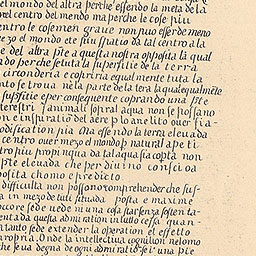 el mondo del altra perche essendo la meta de la
nel centro del mondo ma perche le cose piu
entro le so men graue non puo esser de meno
mezo el mondo ete piu spatio da tal centro ala
e del altra pte a questa nostra opposita la qual
ndo perche se tuta la superfitie de la terra
circonderia e copriria equalmente tuta la
nto se troua ne la parte de la tera la qual equalmēte
supfitie e per consequente coprando una pte
terestri sanimali sopra la aqua non se possano
on e inspiratio del aere p lo anelito ouer fia
odification pia Ma essendo la terra eleuada
centro ouer mezo el mondo p natural apeti
tro piu propinqua da tal aqua sia copta non
pte eleuada che per diuino consci oa
posita chomo e predicto
difficulta non possono comprehender che sus
a in mezo de tuti situada posta e maxime
ocore se de uede niuna cosa star senza sosten ta
entada questa admiration in tutto cessa quan
n tanto se de extender la operation el effetto
propria. Onde la intellectiua cognition nel omo
che se ia degna de ogni admiratio sei una pte